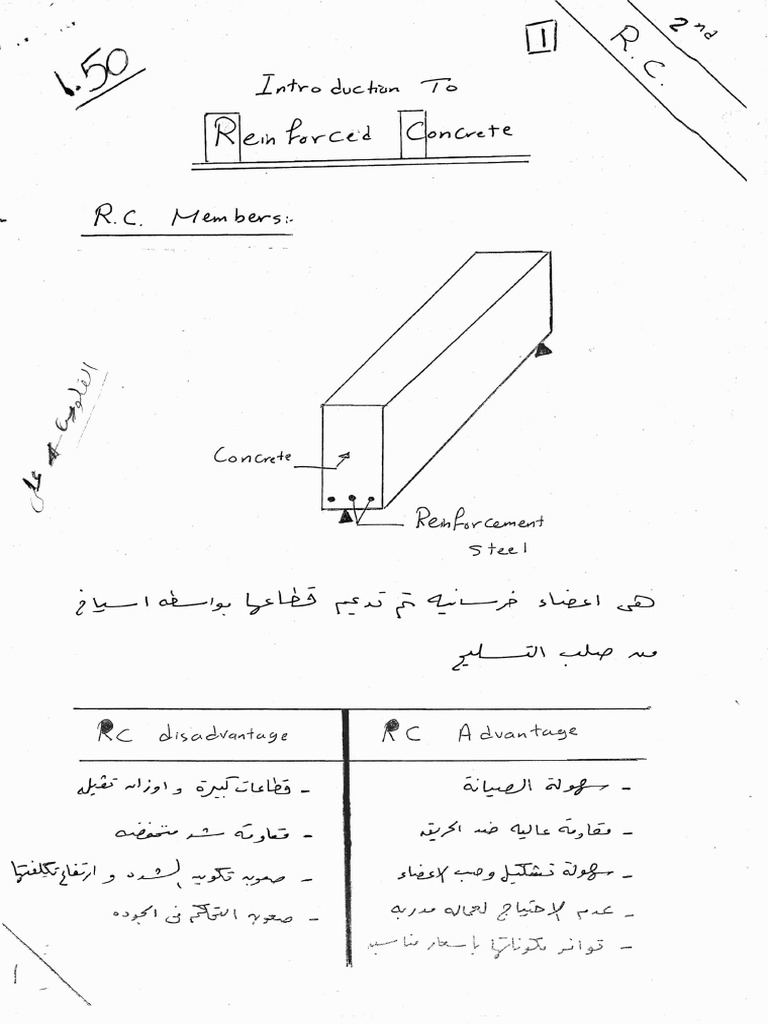 2nd
R.C.
1
1.50
Introduction To
Reinforced Concrete
R.C. Members:-
Concrete
Reinforcement
Steel
هى اعضاء خرسانيه تم تدعيم قطاعها بواسطه اسياخ
من صلب التسليح
RC Advantage
- سهولة الصيانة
- مقاومة عاليه ضد الحريق
- سهولة تشكيل وصب الاعضاء
- عدم الاحتياج لعماله مدربه
- توافر مكوناتها بأسعار مناسبه
RC disadvantage
- قطاعات كبيرة و اوزان ثقيله
- مقاومة شد منخفضه
- صعوبه تكوين الشده و ارتفاع تكلفتها
- صعوبه التحكم فى الجوده
1